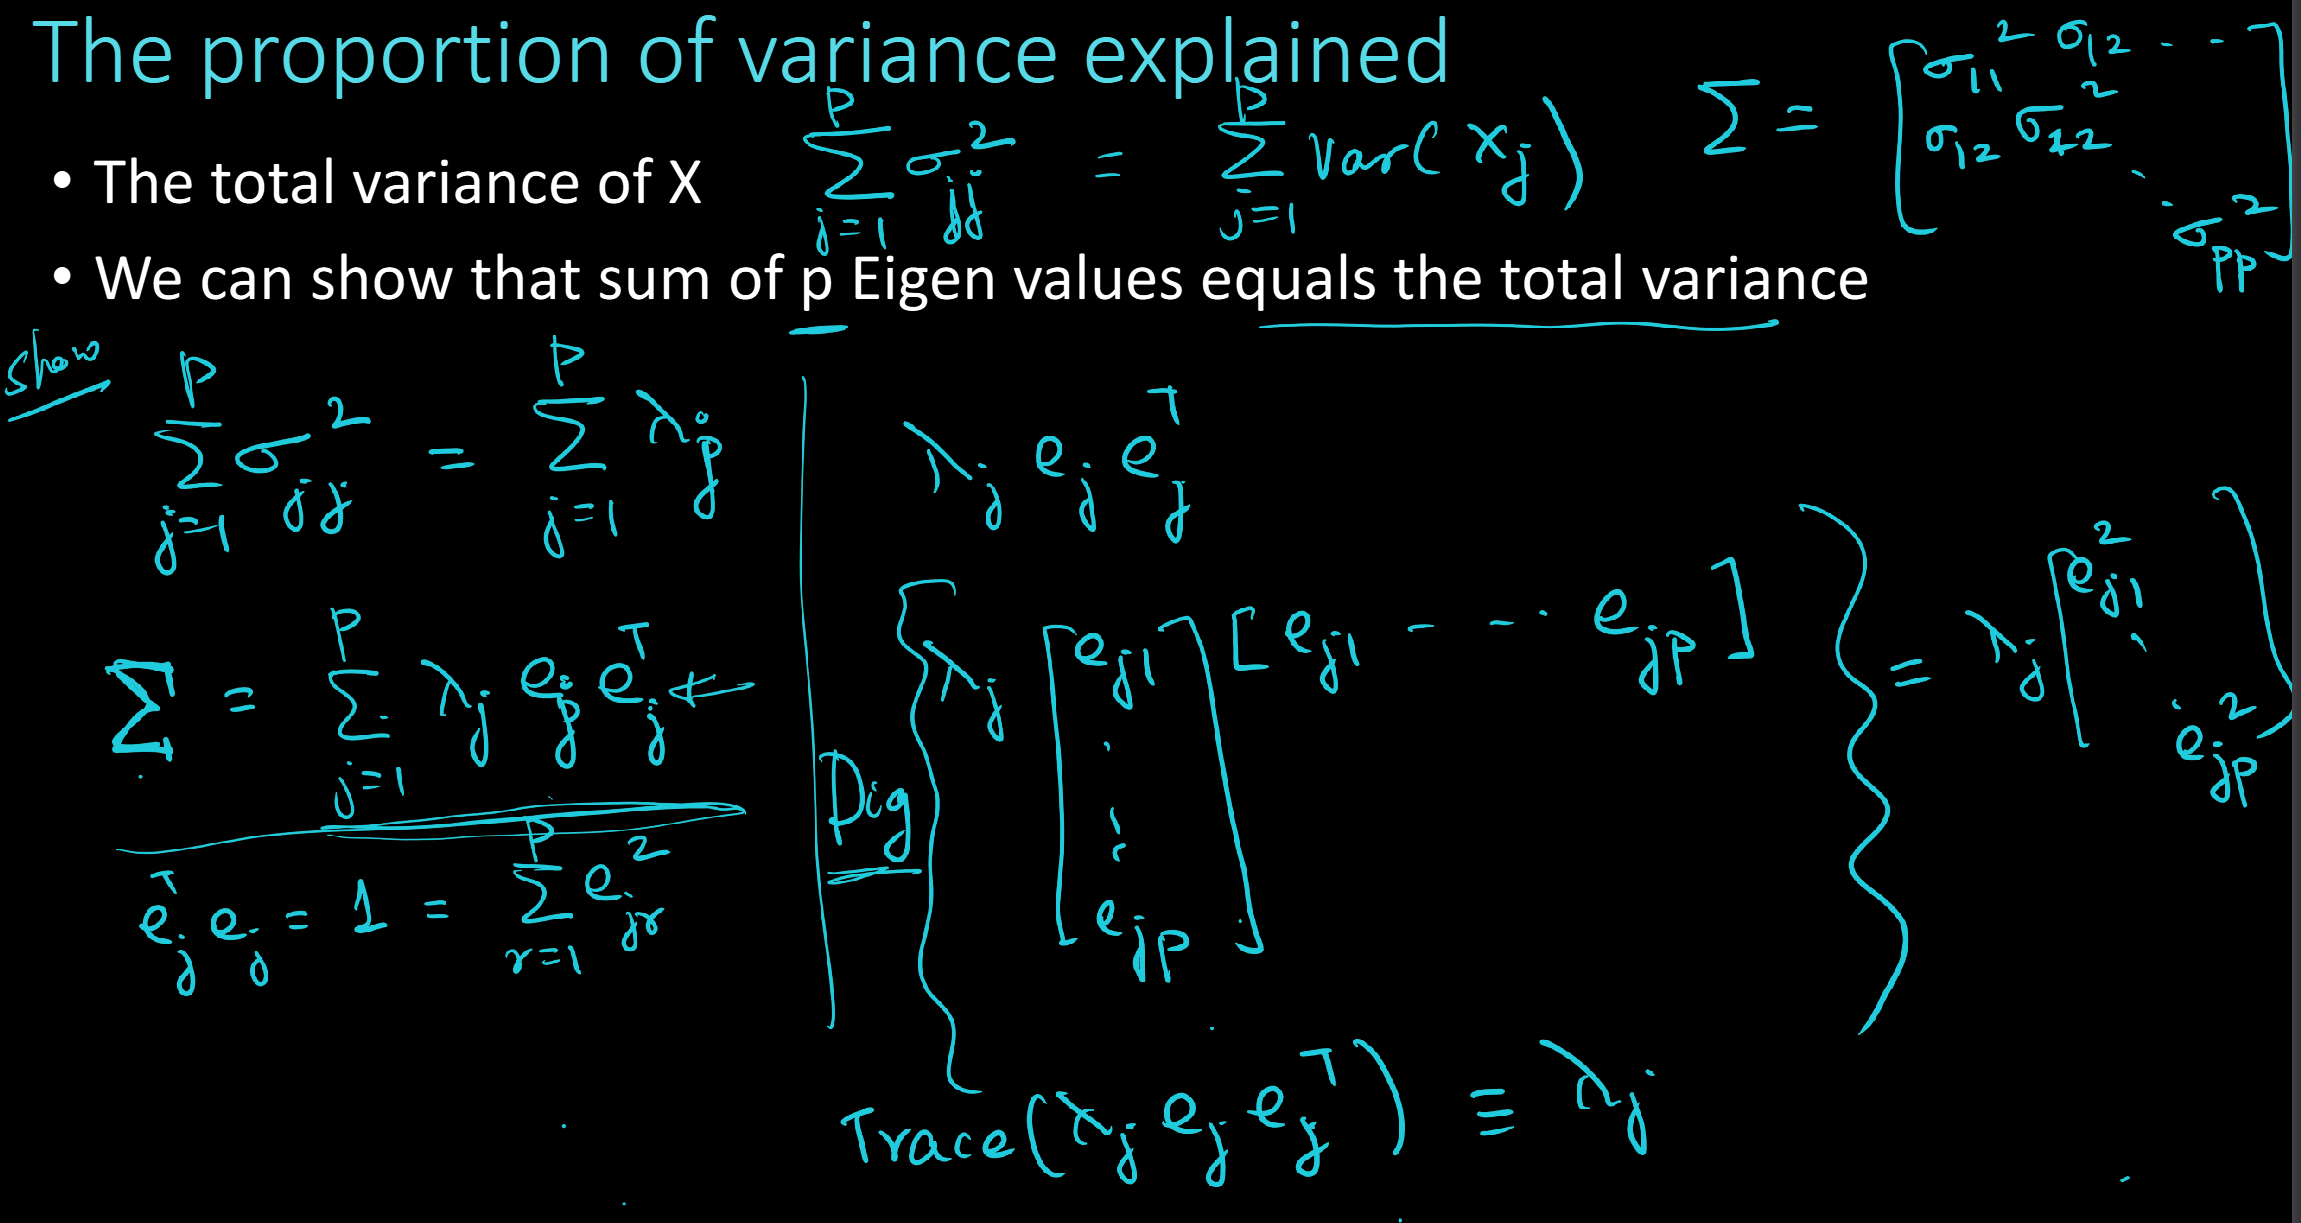 The proportion of variance explained
• The total variance of X
∑_{j=1}^{p} σ_{jj}^2 = ∑_{j=1}^{p} Var(X_j)
∑ = [σ_{11}^2 σ_{12} - -
σ_{12} σ_{22}^2
σ_{pp}^2]
• We can show that sum of p Eigen values equals the total variance
Show
∑_{j=1}^{p} σ_{jj}^2 = ∑_{j=1}^{p} λ_j
∑ = ∑_{j=1}^{p} λ_j e_j e_j^T ←
e_j^T e_j = 1 = ∑_{r=1}^{p} e_{jr}^2
λ_j e_j e_j^T
Dig { λ_j [e_{j1} ⋮ e_{jp}] [e_{j1} - - - e_{jp}] } = λ_j [e_{j1}^2 ⋱ e_{jp}^2]
Trace(λ_j e_j e_j^T) ≡ λ_j